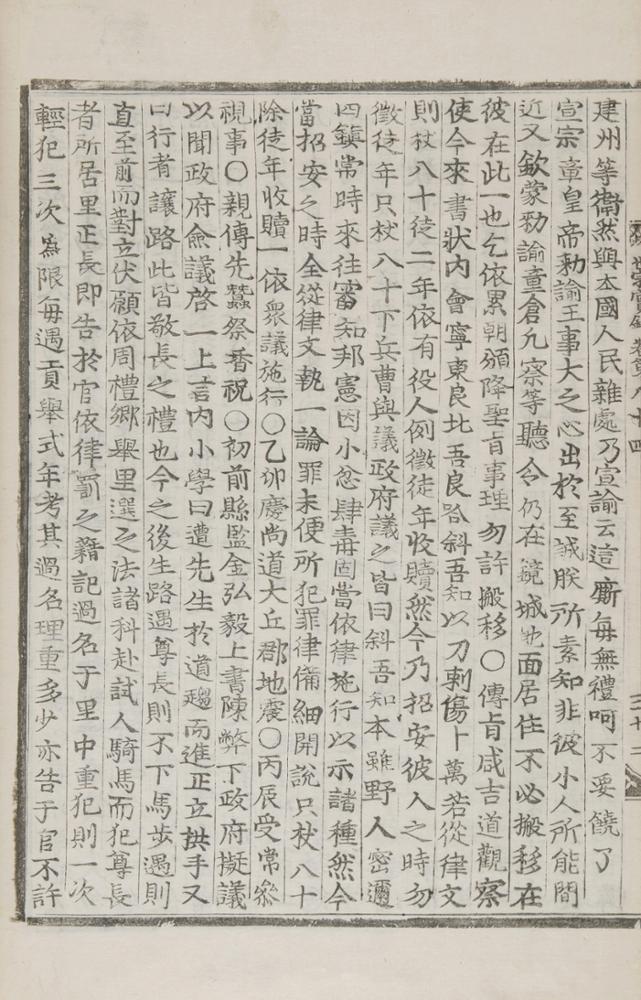 建州等衛然與本國人民雜處乃宣諭云這廝每無禮呵不要饒了
宣宗章皇帝勑諭王事大之心出於至誠朕所素知非彼小人所能間
近又欽蒙勑諭童倉九察等聽令仍在鏡城地面居住不必搬移在
彼在此一也乞依累朝頒降聖旨事理勿許搬移○傳旨咸吉道觀察
使今來書狀內會寧東良北吾良哈斜吾知以刀刺傷卜萬若從律文
則杖八十徒二年依有役人例徵徒年收贖然今乃招安彼人之時勿
徵徒年只杖八十下兵曹與議政府議之皆曰斜吾知本雖野人密邇
四鎭常時來往審知邦憲因小忿肆毒固當依律施行以示諸種然今
當招安之時全從律文執一論罪未便所犯罪律備細開說只杖八十
除徒年收贖一依衆議施行○乙卯慶尙道大丘郡地震○丙辰受常參
視事○親傳先蠶祭香祝○初前縣監金弘毅上書陳弊下政府擬議
以聞政府僉議啓一上言內小學曰遭先生於道趨而進正立拱手又
曰行者讓路此皆敬長之禮也今之後生路遇尊長則不下馬步遇則
直至前而對立伏願依周禮鄕舉里選之法諸科赴試人騎馬而犯尊長
者所居里正長即告於官依律罰之籍記過名于里中重犯則一次
輕犯三次爲限每遇貢舉式年考其過名理重多少亦告于官不許